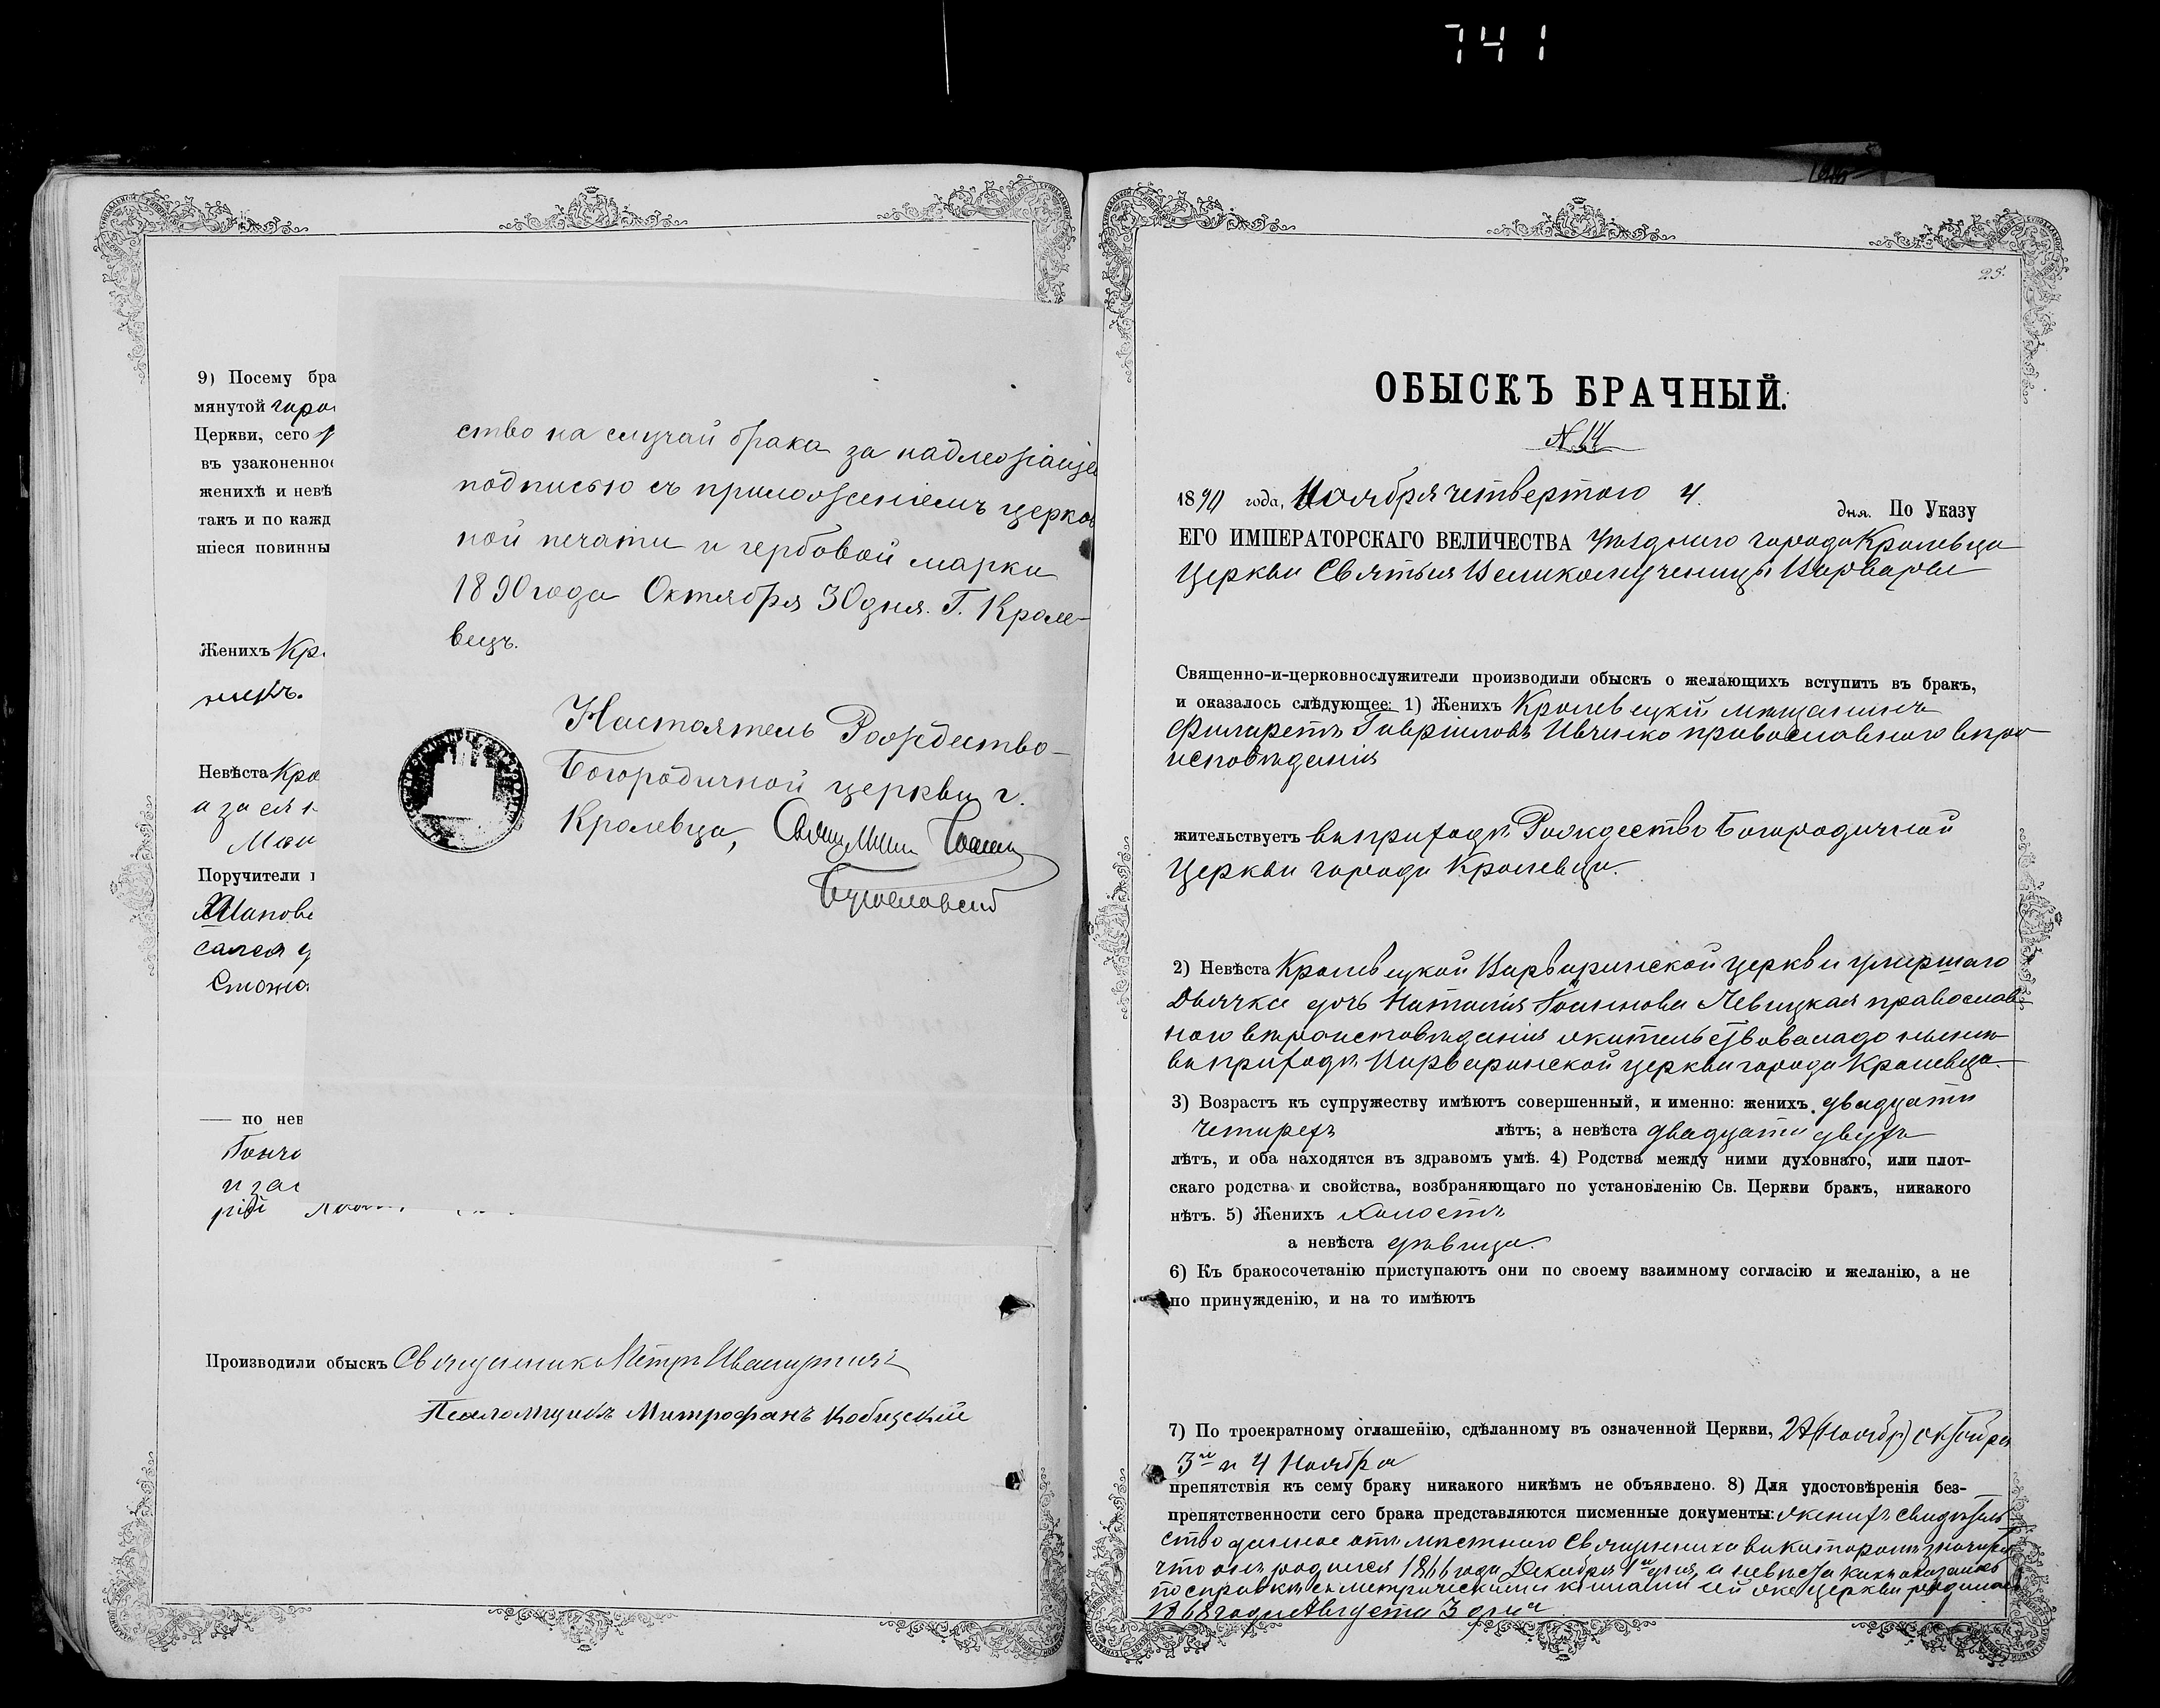 741
9) Посему бра
мянутой горо
Церкви, сего
въ узаконенно
женихѣ и невѣ
такъ и по кажд
шіеся повинны
Женихъ Кр
Невѣста Кро
а за ея
Поручители
Шапов
— по нев
Гонча
и за
ство на случай брака за надлежаще
подписью съ приложеніемъ церков
ной печати и гербовой марки
1890 года Октября 30 дня. Г. Кроле-
вецъ.
Настоятель Рождество-
Богородичной церкви г.
Кролевца, Священникъ Іоаннъ
Богословскій
Производили обыскъ Священникъ Петръ
Псаломщикъ Митрофанъ Кобицскій
25.
ОБЫСКЪ БРАЧНЫЙ.
N 14
1890 года, Ноября четвертого 4. дня. По Указу
ЕГО ИМПЕРАТОРСКАГО ВЕЛИЧЕСТВА уѣзднаго города Кролевца
Церкви Святыя Великомученицы Варвары
Священно-и-церковнослужители производили обыскъ о желающихъ вступить въ бракъ,
и оказалось слѣдующее: 1) Женихъ Кролевецкій мѣщанинъ
Филаретъ Гавріиловъ Ивченко православнаго вѣро
исповѣданія
жительствуетъ въ приходѣ Рождество Богородичной
Церкви города Кролевца.
2) Невѣста Кролевецкой Варваринской церкви умершаго
Дьячка дочь Наталія Іоаннова Левицкая православ
ного вѣроисповѣданія жительствовала до нынѣ
въ приходѣ Варваринской церкви города Кролевца.
3) Возрастъ къ супружеству имѣютъ совершенный, и именно: женихъ двадцати
четырехъ лѣтъ; а невѣста двадцати двухъ
лѣтъ, и оба находятся въ здравомъ умѣ. 4) Родства между ними духовнаго, или плот-
скаго родства и свойства, возбраняющаго по установленію Св. Церкви бракъ, никакого
нѣтъ. 5) Женихъ холостъ
а невѣста дѣвица.
6) Къ бракосочетанію приступаютъ они по своему взаимному согласію и желанію, а не
по принужденію, и на то имѣютъ
7) По троекратному оглашенію, сдѣланному въ означенной Церкви, (Ноябр) октября
3го и 4 Ноября
препятствія къ сему браку никакого никѣмъ не объявлено. 8) Для удостовѣренія без-
препятственности сего брака представляются писменные документы: женихъ свидѣтель
ство данное отъ мѣстнаго Священника въ которомъ
что онъ родился 1866 года Декабря 1го дня, а невѣста какъ оказалось
по справкѣ съ метрическими книгами сей же церкви родилась
1868 года Августа 3 дня